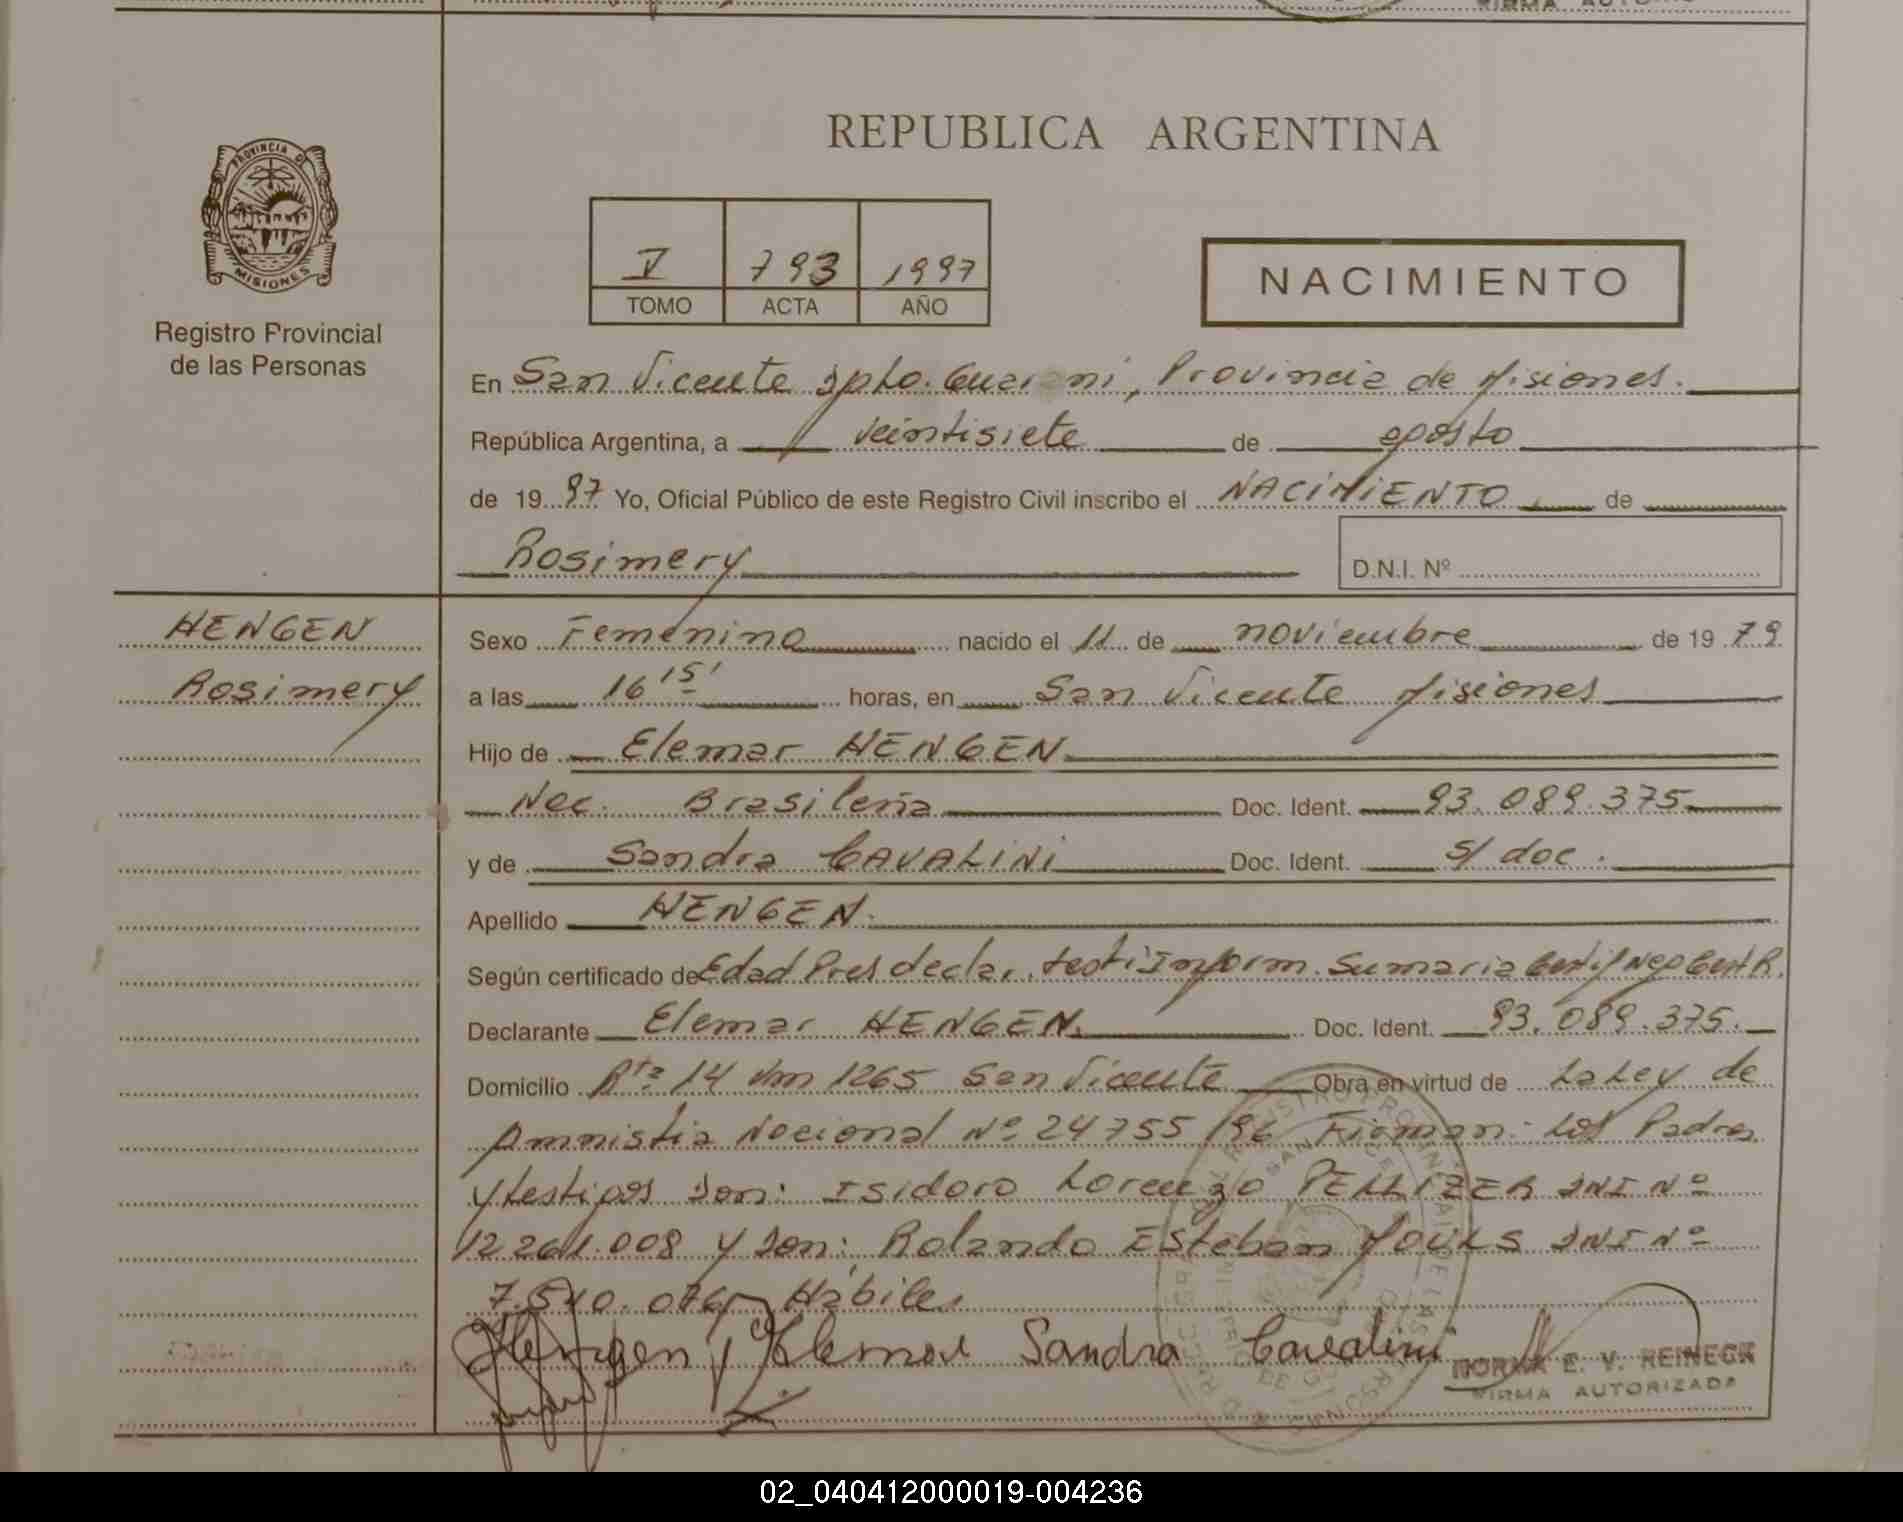 FIRMA AUTORIZADA
REPUBLICA ARGENTINA
PROVINCIA DE
MISIONES
Registro Provincial
de las Personas
V 793 1997
TOMO ACTA AÑO
NACIMIENTO
En San Vicente Dpto. Guarani, Provincia de Misiones.
República Argentina, a veintisiete de agosto
de 1997 Yo, Oficial Público de este Registro Civil inscribo el NACIMIENTO de
Rosimery
D.N.I. Nº
HENGEN
Rosimery
Sexo Femenino nacido el 11 de noviembre de 1979
a las 16 15' horas, en San Vicente Misiones
Hijo de Elemar HENGEN
Nac. Brasileña Doc. Ident. 93.089.375
y de Sandra CAVALINI Doc. Ident. S/ doc.
Apellido HENGEN.
Según certificado de Edad Pres. decla. testi Inform. Sumaria Certif Neg Cert R.
Declarante Elemar HENGEN. Doc. Ident. 93.089.375.
Domicilio Rta 14 Km 1265 San Vicente Obra en virtud de La Ley de
Amnistia Nacional Nº 24755/96 Firman: Los Padres
y testigos Don: Isidoro Lorenzo PELLIZER DNI Nº
12.261.008 y Don: Rolando Esteban DNI Nº
7.540.076 Hábiles
Hengen Elemar Sandra Cavalini
NORMA E. V. REINECK
FIRMA AUTORIZADA
02_040412000019-004236